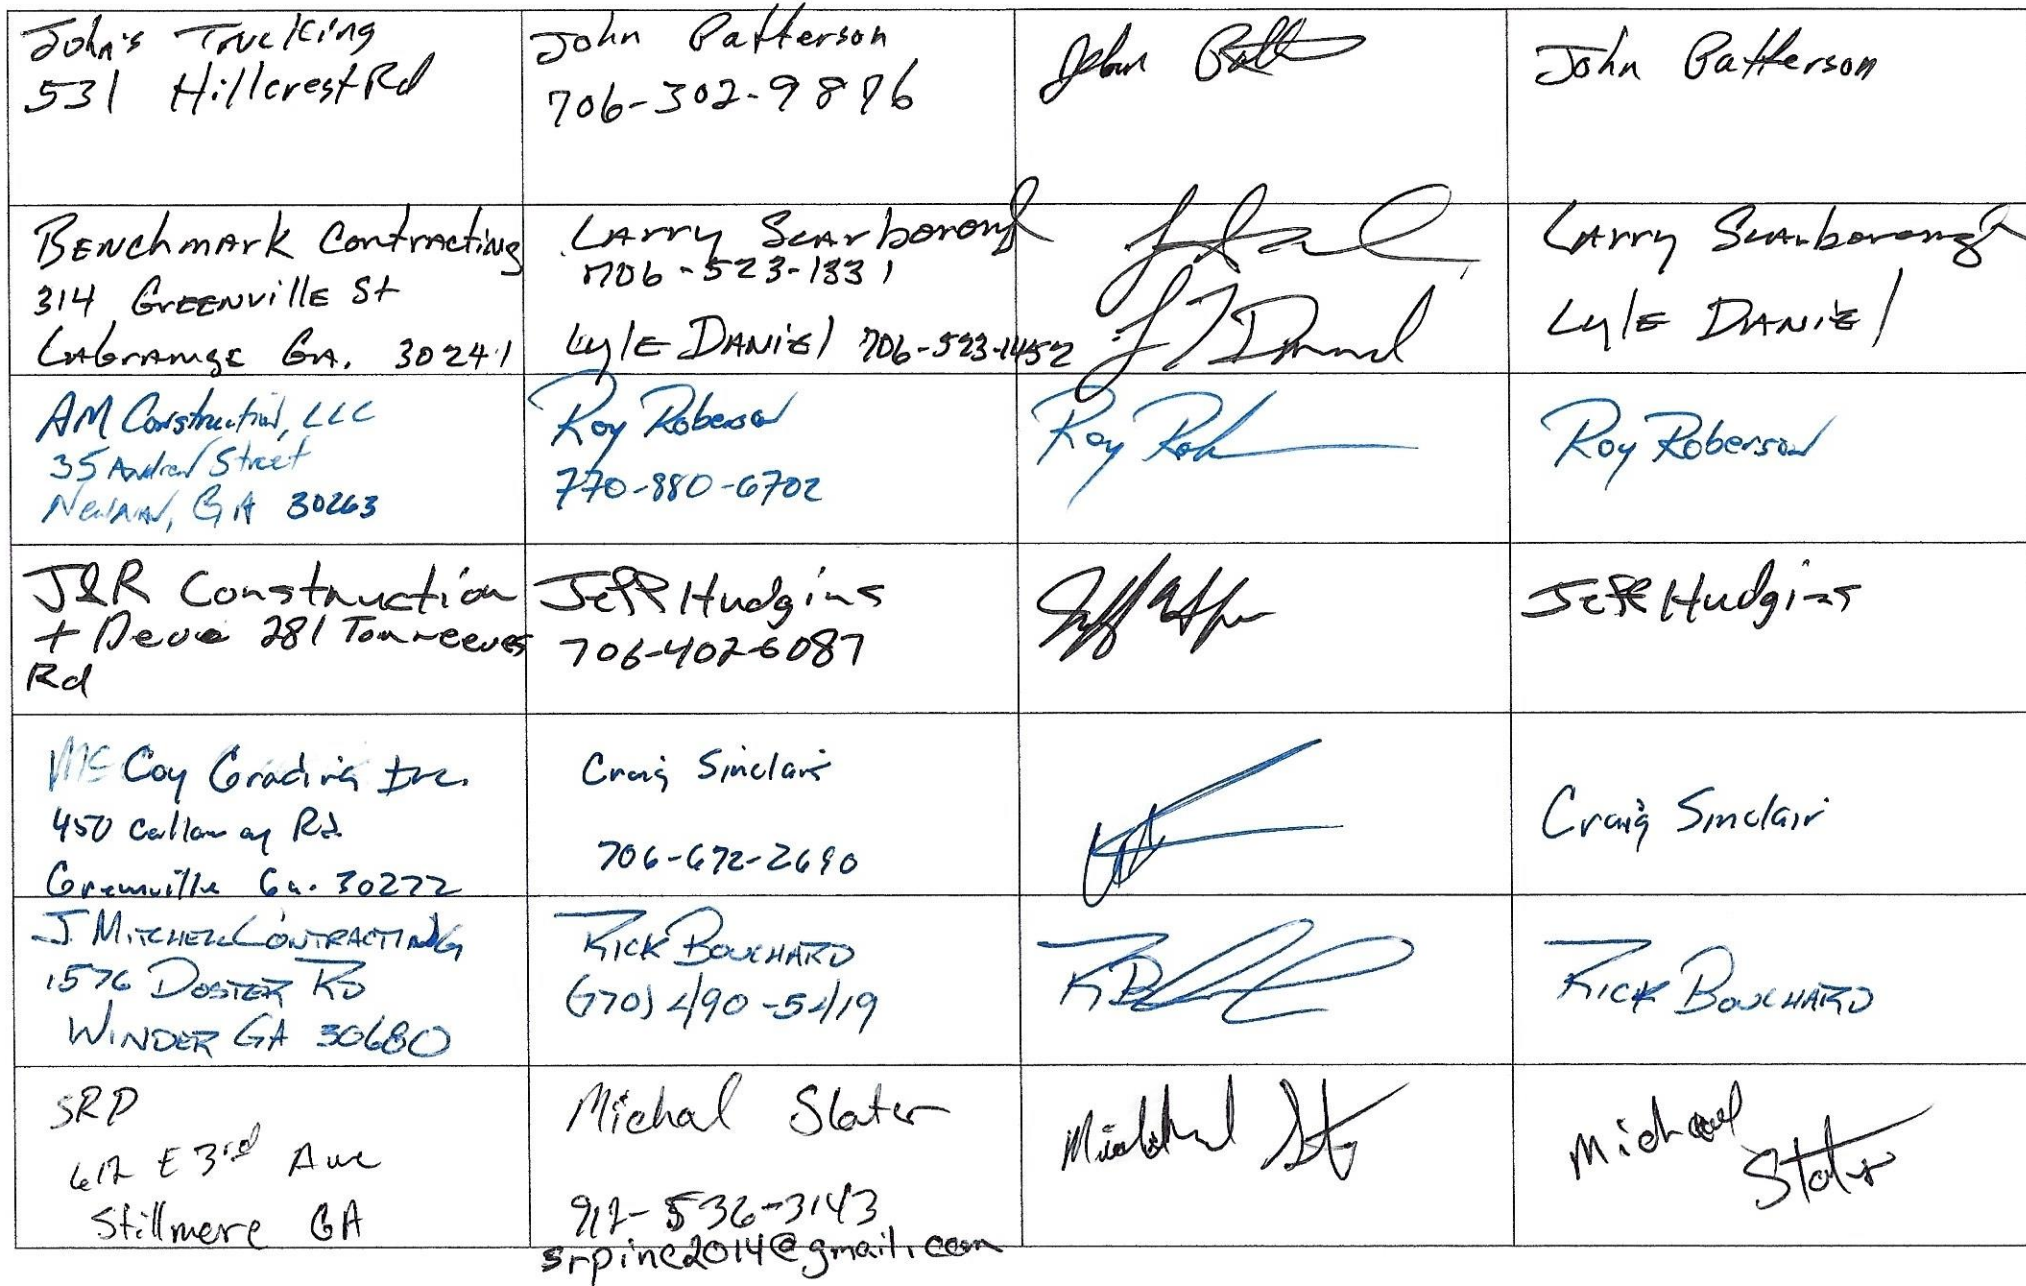 John's Trucking
531 Hillcrest Rd
John Patterson
706-302-9876
John Patt
John Patterson
BENchmark Contracting
314 GREENville St
LaGrange GA. 30241
Larry Scarborough
706-523-1331
Lyle Daniel 706-523-1452
Larry Scarborough
Lyle Daniel
AM Construction, LLC
35 Andrew Street
Newnan, GA 30263
Roy Roberson
770-880-6702
Roy
Roy Roberson
J&R Construction
+ Deve 281 Tom reeves
Rd
Jeff Hudgins
706-402-6087
Jeff Hudgins
McCoy Grading Inc.
450 Callaway Rd.
Greenville Ga. 30222
Craig Sinclair
706-672-2690
Craig Sinclair
J. MITCHELL CONTRACTING
1576 DOSTER RD
WINDER GA 30680
RICK BOUCHARD
(770) 490-5419
RB
RICK BOUCHARD
SRP
612 E 3rd Ave
Stillmere GA
Michal Slater
912-536-3143
srpinc2014@gmail.com
Michael
Michael
Slater